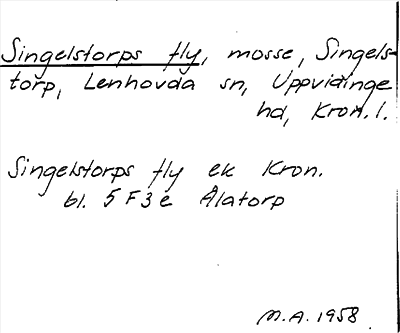 Singelstorps fly, mosse, Singels-
torp, Lenhovda sn, Uppvidinge
hd, Kron. l.
Singelstorps fly ek Kron.
bl. 5 F 3 e Ålatorp
M.A. 1958